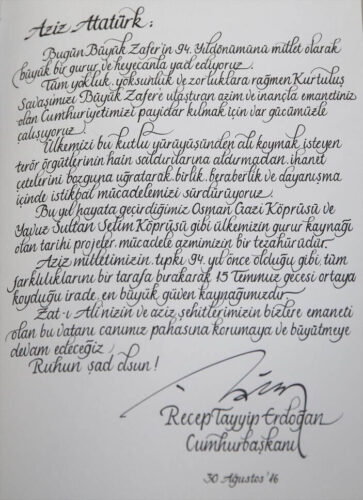 Aziz Atatürk;
Bugün Büyük Zafer'in 94. Yıldönümünü millet olarak
büyük bir gurur ve heyecanla yad ediyoruz.
Tüm yokluk, yoksunluk ve zorluklara rağmen Kurtuluş
Savaşımızı Büyük Zafer'e ulaştıran azim ve inançla emanetiniz
olan Cumhuriyetimizi payidar kılmak için var gücümüzle
çalışıyoruz.
Ülkemizi bu kutlu yürüyüşünden ali koymak isteyen
terör örgütlerinin hain saldırılarına aldırmadan, ihanet
çetelerini bozguna uğratarak, birlik, beraberlik ve dayanışma
içinde istikbal mücadelemizi sürdürüyoruz.
Bu yıl hayata geçirdiğimiz Osman Gazi Köprüsü ve
Yavuz Sultan Selim Köprüsü gibi ülkemizin gurur kaynağı
olan tarihi projeler, mücadele azmimizin bir tezahürüdür.
Aziz milletimizin, tıpkı 94. yıl önce olduğu gibi, tüm
farklılıklarını bir tarafa bırakarak 15 Temmuz gecesi ortaya
koyduğu irade, en büyük güven kaynağımızdır.
Zat-ı Ali'nizin ve aziz şehitlerimizin bizlere emaneti
olan bu vatanı canımız pahasına korumaya ve büyütmeye
devam edeceğiz.
Ruhun şad olsun!
Recep Tayyip Erdoğan
Cumhurbaşkanı
30 Ağustos '16